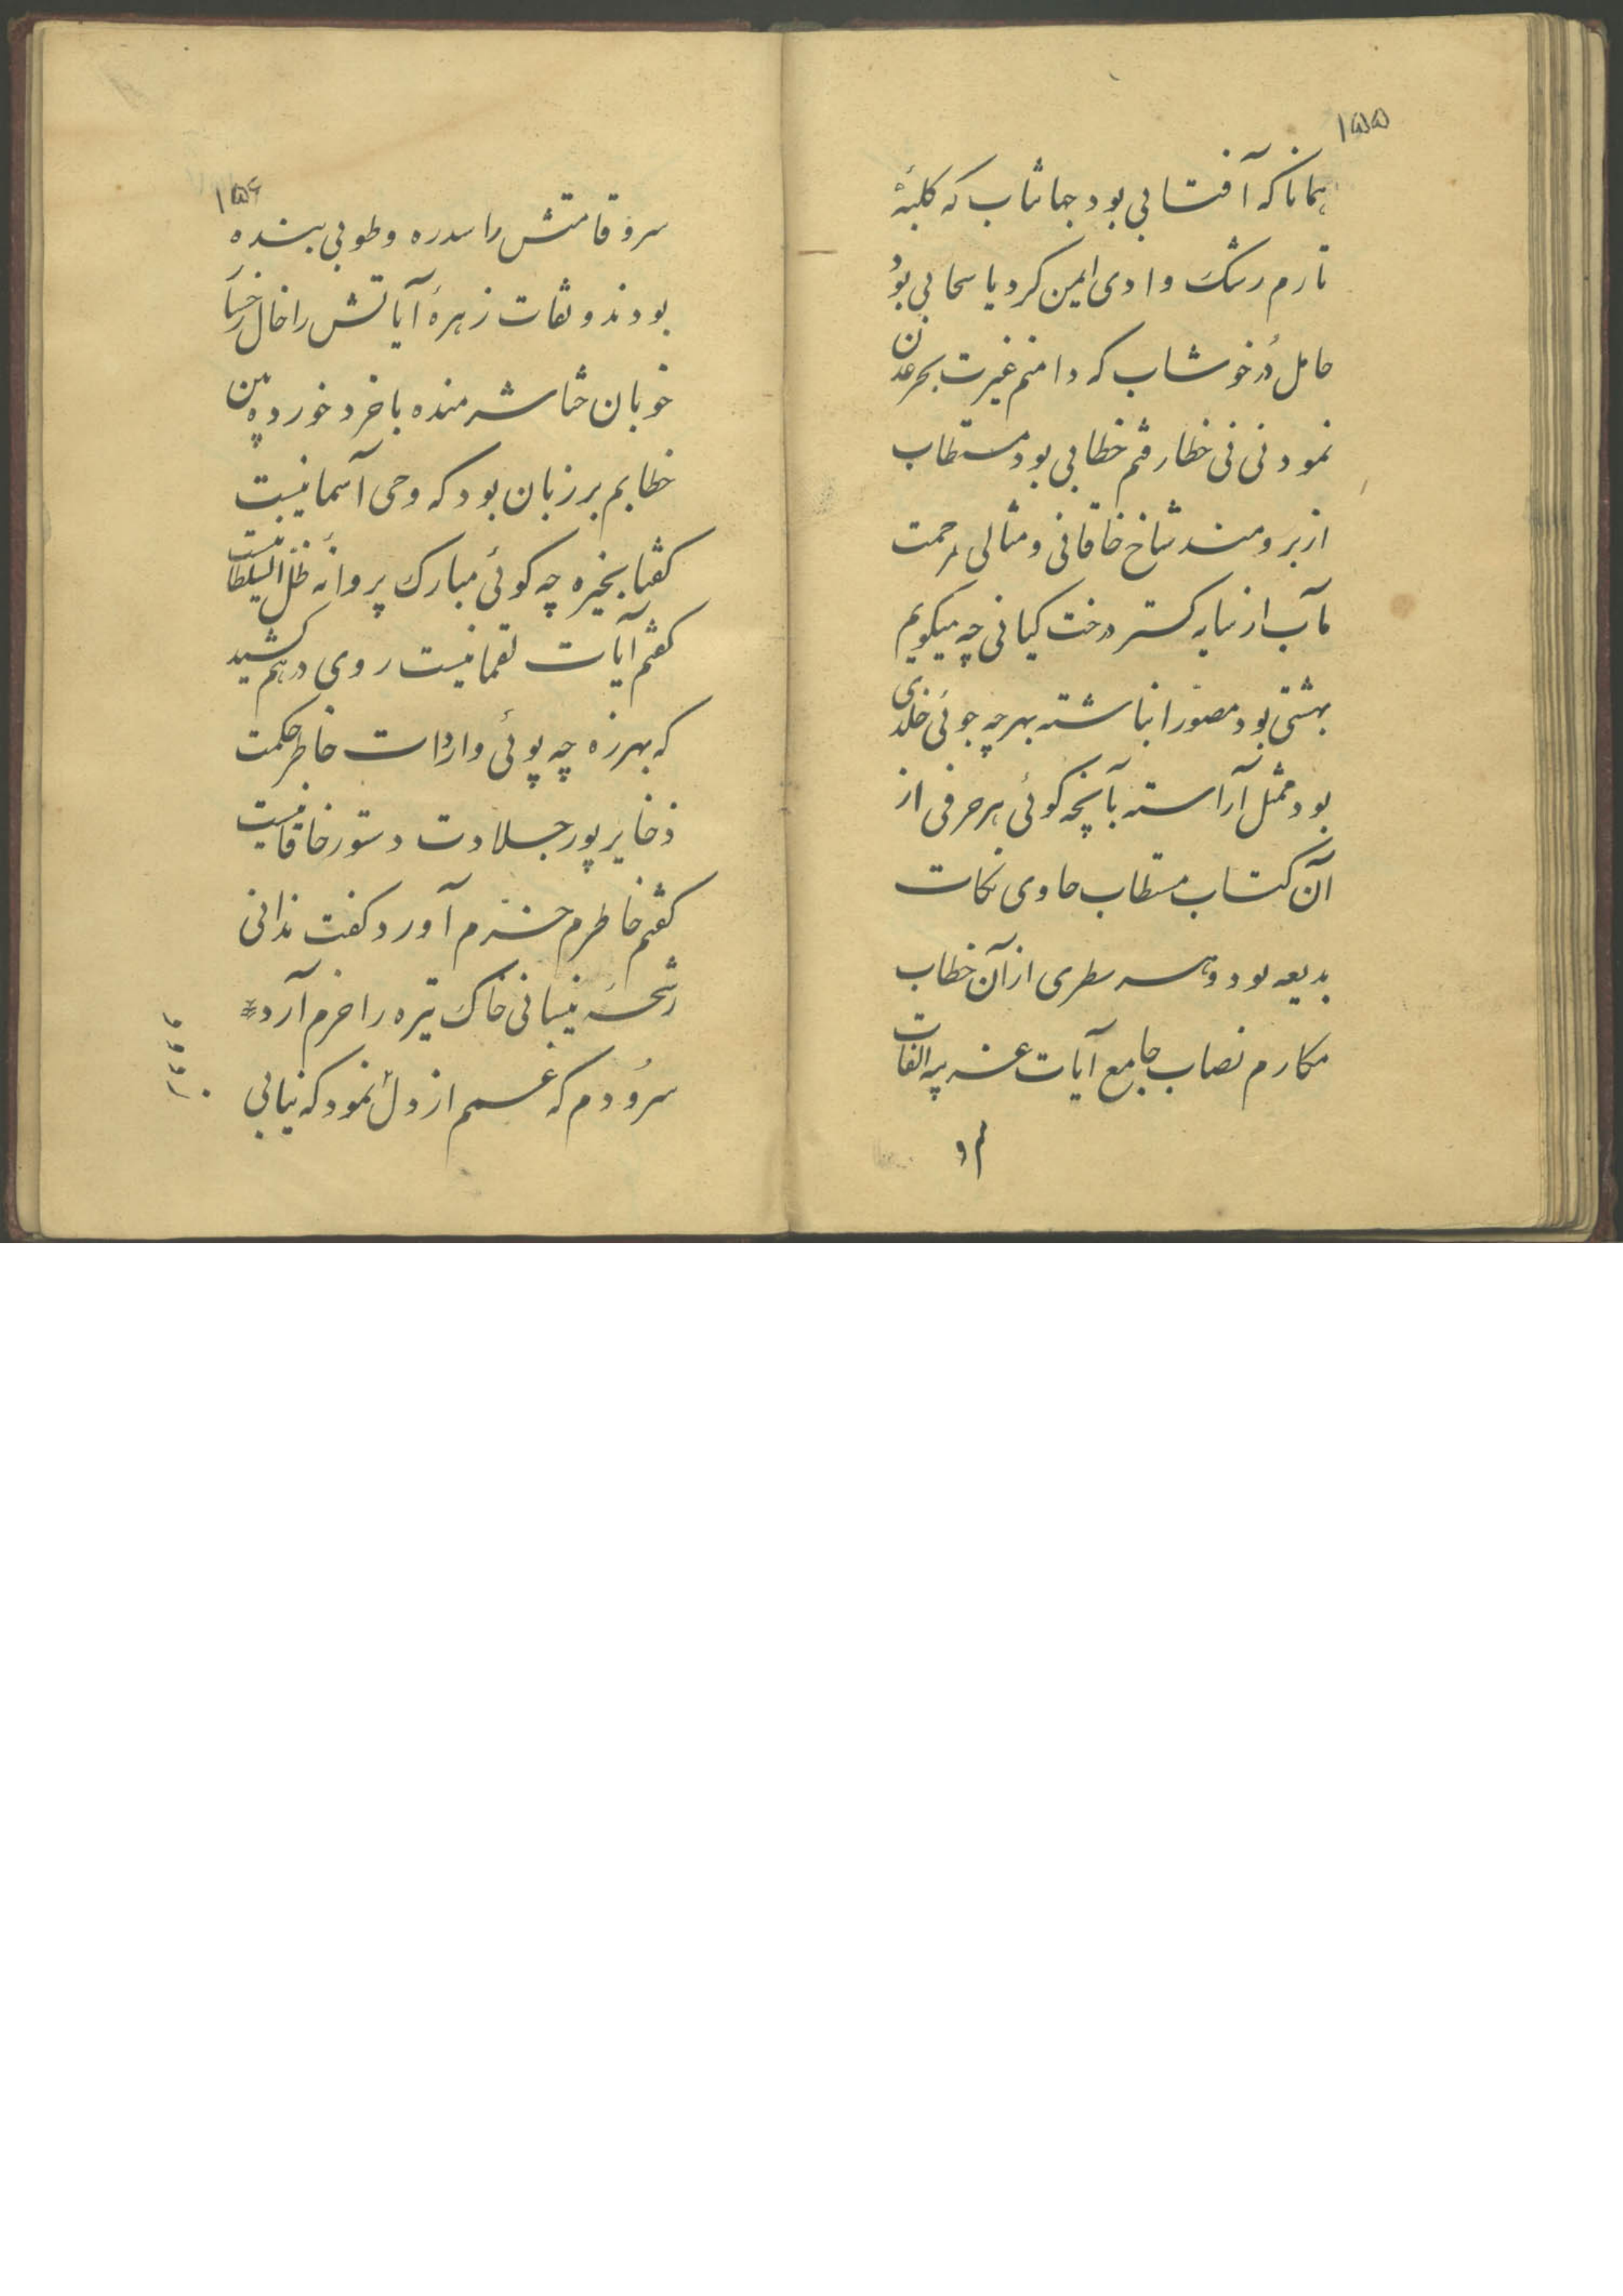 ۱۵۵
همانا که آفتابی بود جهانتاب که کلبهٔ
تارم رشک وادی ایمن کرد یا سحابی بود
حامل دُر خوشاب که دامنم غیرت بحر عدن
نمود نی نی خطا رفتم خطابی بود مستطاب
از برومند شاخ خاقانی و مثالی مرحمت
مآب از سایه گستر درخت کیانی چه میگویم
بهشتی بود مصوّر انباشته بهرچه جوئی خلدی
بود ممثل آراسته بآنچه گوئی هر حرفی از
آن کتاب مستطاب حاوی نکات
بدیعه بود و هر سطری از آن خطاب
مکارم نصاب جامع آیات غریبه الفات
۱۵۶
سرو قامتش را سدره و طوبی بنده
بودند و نقات زهرهٔ آیاتش را خال رخسار
خوبان ختا شرمنده با خرد خورده بین
خطابم بر زبان بود که وحی آسمانیست
گفتا بخیره چه گوئی مبارک پروانهٔ ظلّ السلطانیست
گفتم آیات لقمانیست روی درهم کشید
که بهرزه چه پوئی واردات خاطر حکمت
ذخایر پور جلادت دستور خاقانیست
گفتم خاطرم خرّم آورد گفت ندانی
رشحهٔ نیسانی خاک تیره را خرم آرد
سرُودم که غمم از دل نمود که نیابی